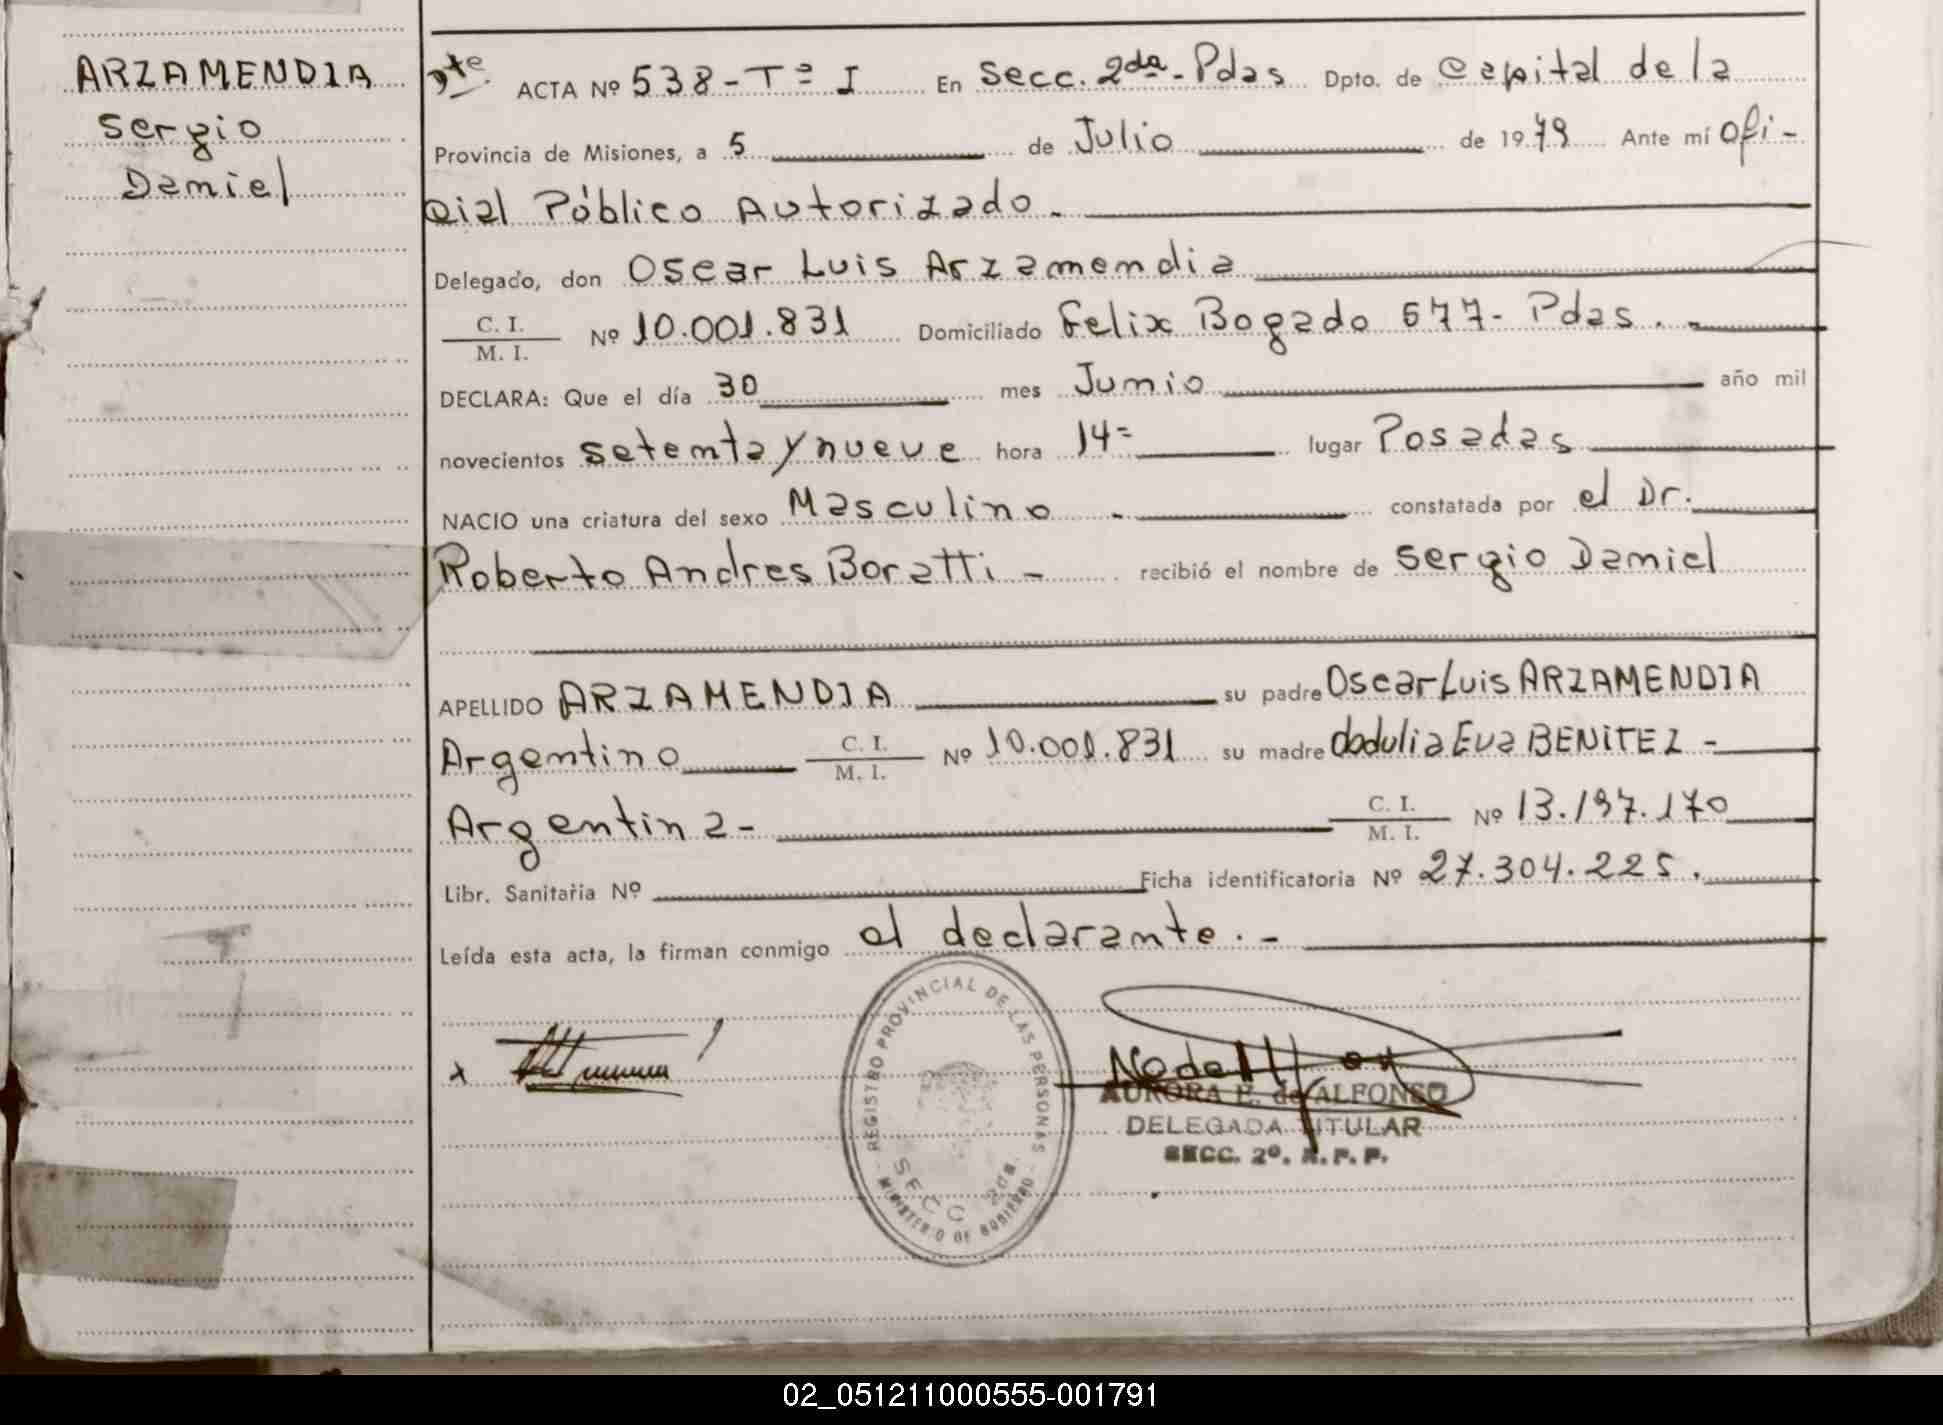 ARZAMENDIA
Sergio
Daniel
ACTA Nº 538-Tº I En Secc. 2da-Pdas Dpto. de Capital de la
Provincia de Misiones, a 5 de Julio de 1979 Ante mí Ofi-
cial Público Autorizado.
Delegado, don Oscar Luis Arzamendia
C. I.
M. I. Nº 10.001.831 Domiciliado Felix Bogado 677- Pdas.-
DECLARA: Que el día 30 mes Junio año mil
novecientos setenta y nueve hora 14= lugar Posadas
NACIO una criatura del sexo Masculino - constatada por el Dr.
Roberto Andres Boratti - recibió el nombre de Sergio Daniel
APELLIDO ARZAMENDIA su padre Oscar Luis ARZAMENDIA
Argentino C. I. M. I. Nº 10.001.831 su madre Eva BENITEZ -
Argentina- C. I. M. I. Nº 13.197.170
Libr. Sanitaria Nº Ficha identificatoria Nº 27.304.225.
Leída esta acta, la firman conmigo el declarante.-
x
REGISTRO PROVINCIAL DE LAS PERSONAS
SECC 2da.
- MINISTERIO DE GOBIERNO -
AURORA E. de ALFONSO
DELEGADA TITULAR
SECC. 2º. R. P. P.
02_051211000555-001791